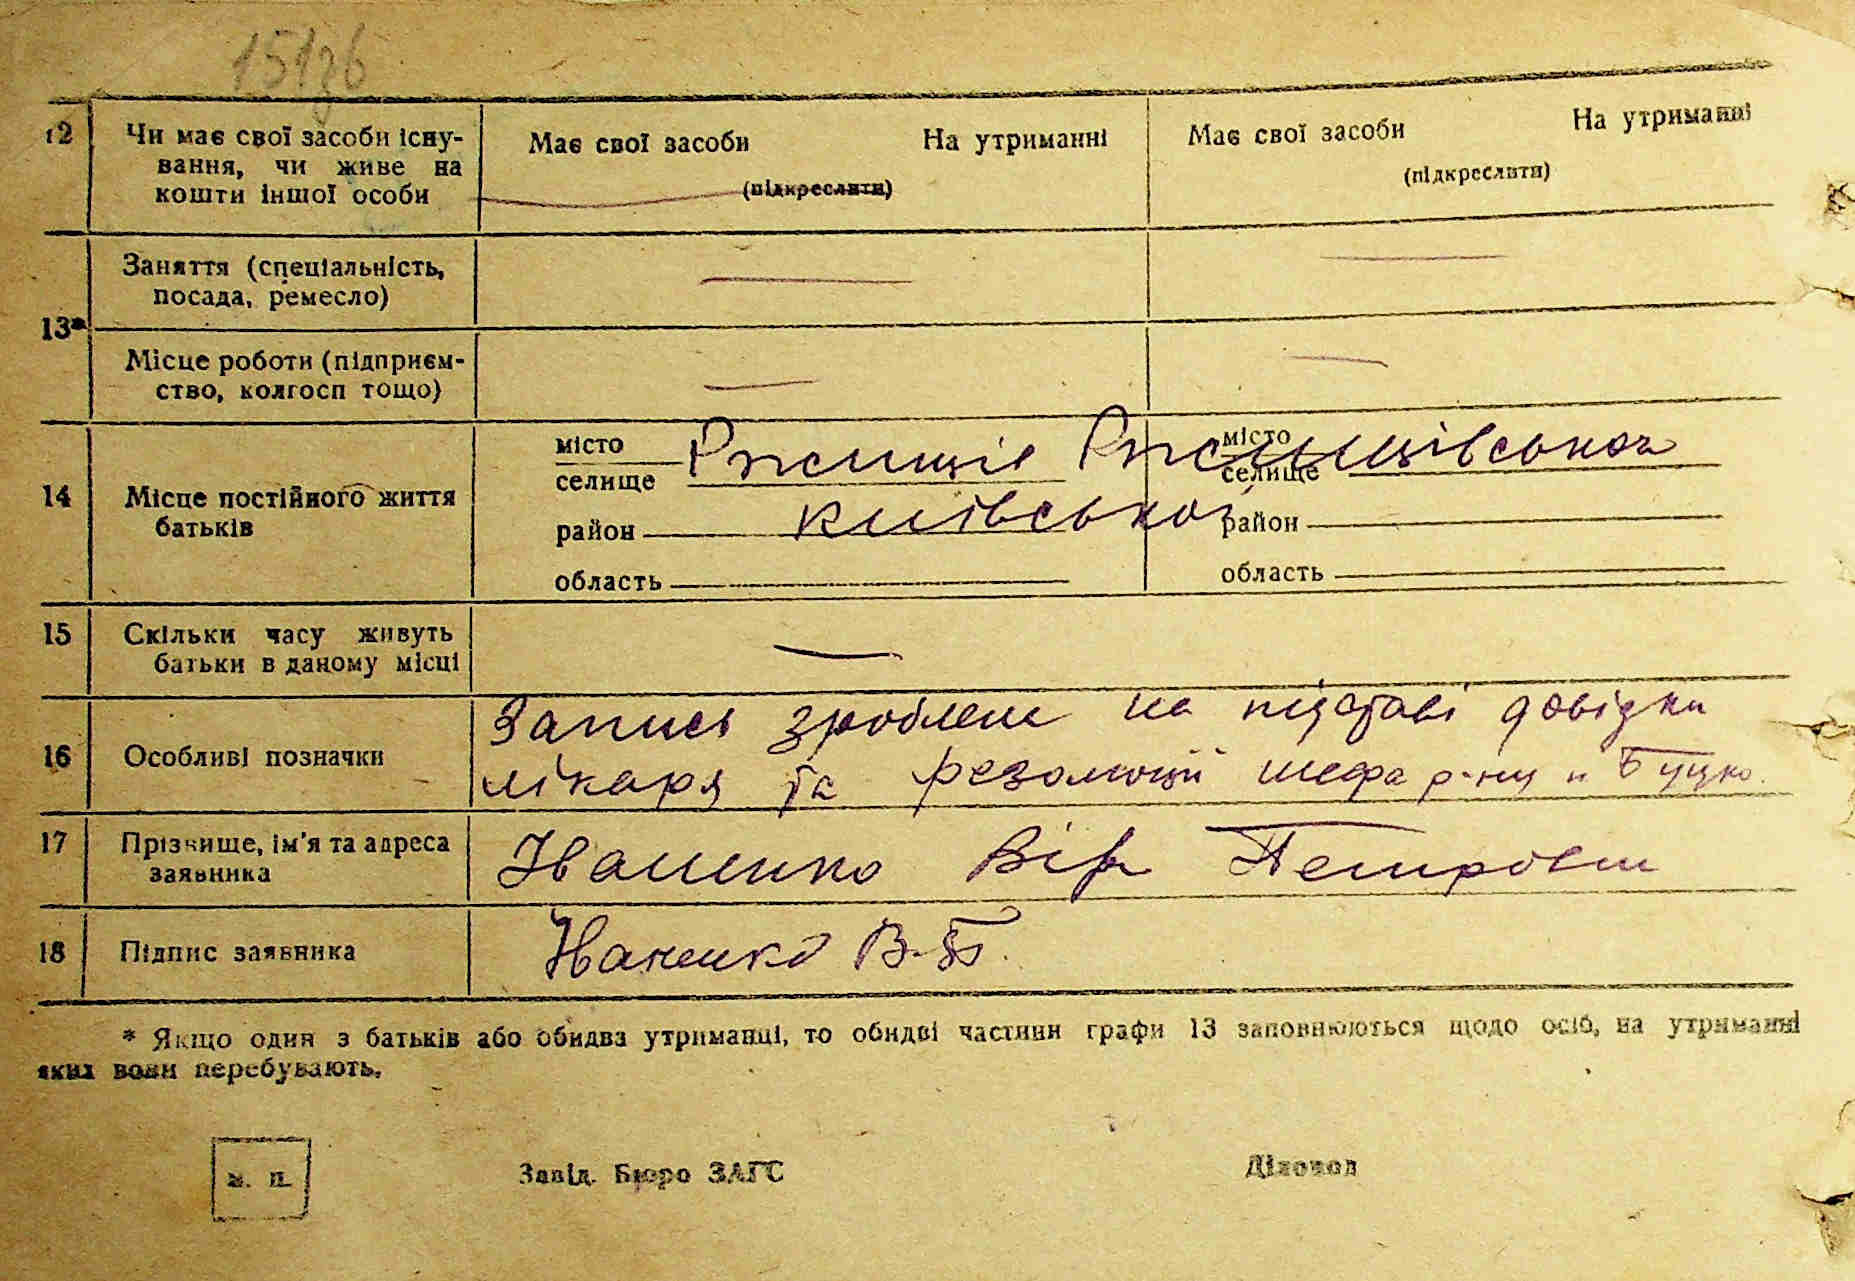 151зв
12 Чи має свої засоби існу-
вання, чи живе на
кошти іншої особи
Має свої засоби На утриманні
(підкреслити)
Має свої засоби На утриманні
(підкреслити)
13*
Заняття (спеціальність,
посада, ремесло)
Місце роботи (підприєм-
ство, колгосп тощо)
14 Місце постійного життя
батьків
місто
селище Ржищів Ржищівської
район Київської
область
місто
селище
район
область
15 Скільки часу живуть
батьки в даному місці
16 Особливі позначки
Запись зроблено на підставі довідки
лікаря та резолюції шефа р-ну п Буцко.
17 Прізвище, ім'я та адреса
заявника
Іваненко Вір Петрович
18 Підпис заявника
Іваненко В.П.
* Якщо один з батьків або обидва утриманці, то обидві частини графи 13 заповнюються щодо осіб, на утриманні
яких вони перебувають.
м. п.
Завід. Бюро ЗАГС
Діловод